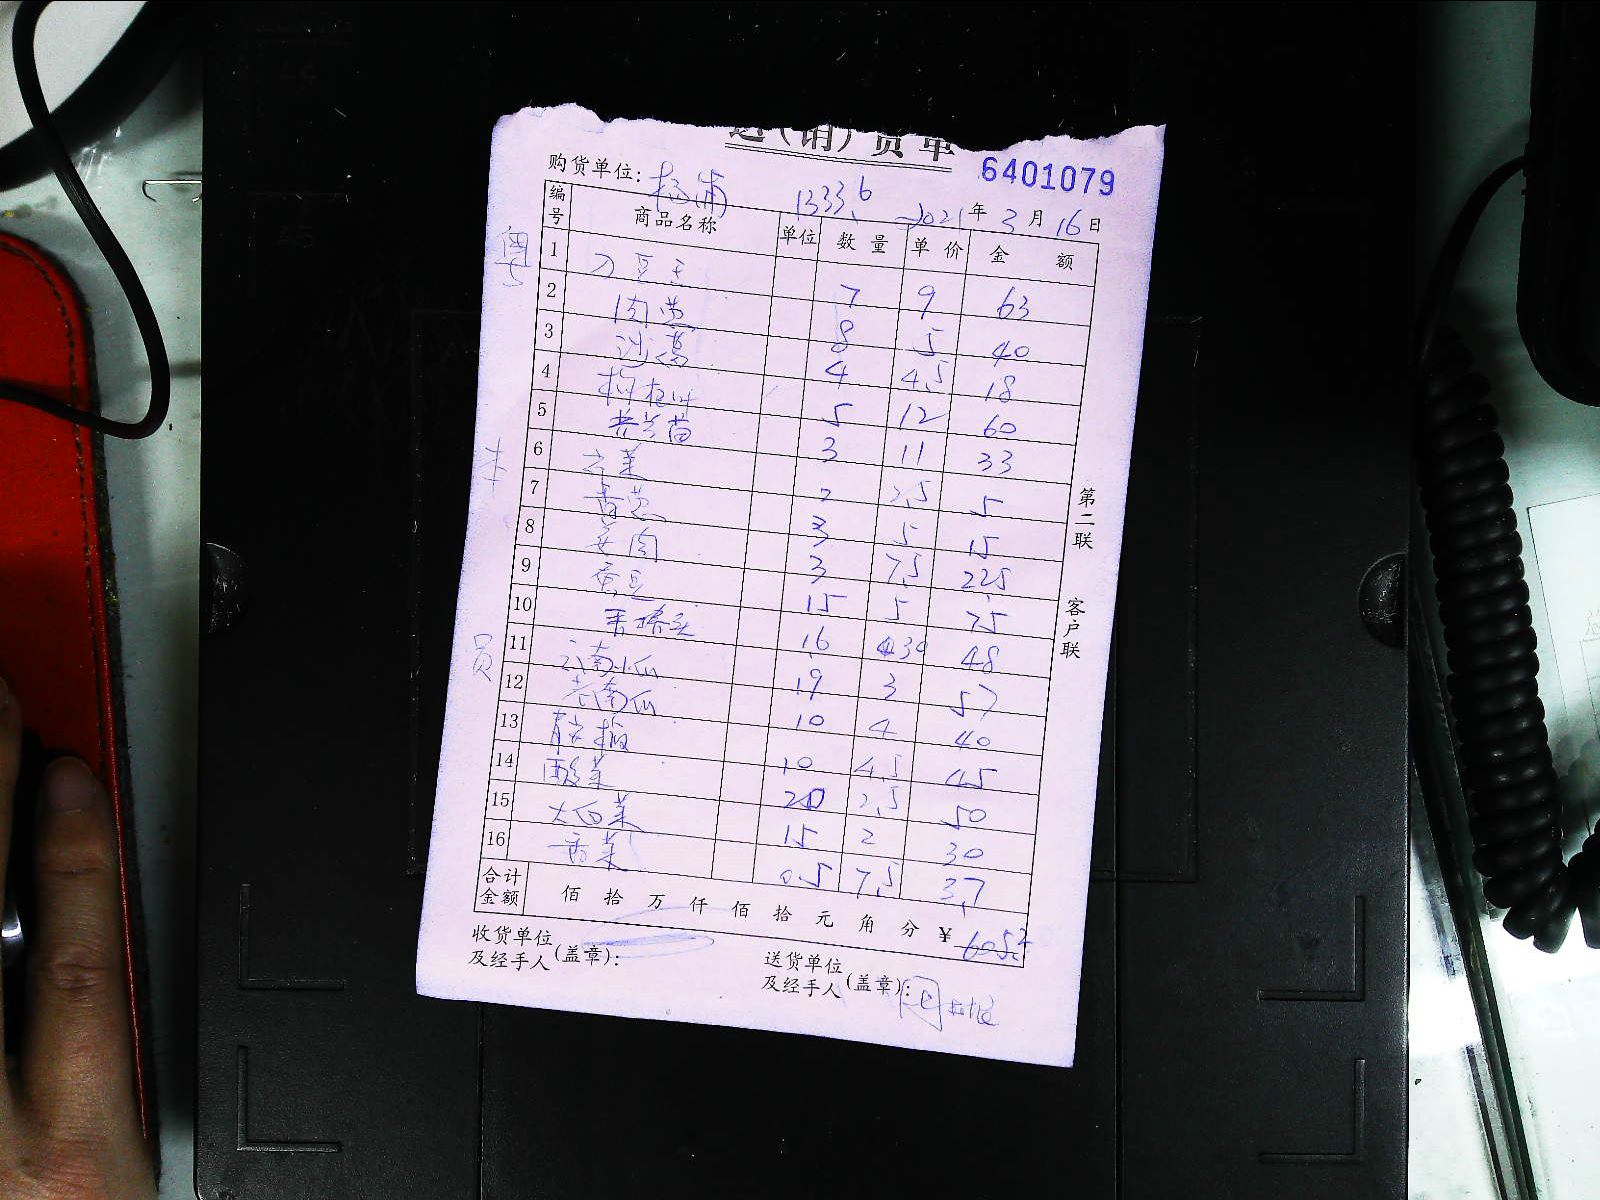 送(销)货单
6401079
购货单位: 杨浦 1333.6 2021年3月16日
编号 商品名称 单位 数量 单价 金额
1 刀豆王 7 9 63
2 肉葱 8 5 40
3 沙葛 4 4.5 18
4 枸杞叶 5 12 60
5 3 11 33
6 芥菜 2 2.5 5
7 香葱 3 5 15
8 姜肉 3 7.5 22.5
9 蚕豆 15 5 75
10 16 3.0 48
11 云南小瓜 19 3 57
12 老南瓜 10 4 40
13 10 4.5 45
14 酸菜 20 2.5 50
15 大白菜 15 2 30
16 香菜 0.5 7.5 3.7
合计金额 佰 拾 万 仟 佰 拾 元 角 分 ¥ 605.2
收货单位及经手人(盖章):
送货单位及经手人(盖章):
第二联 客户联
员